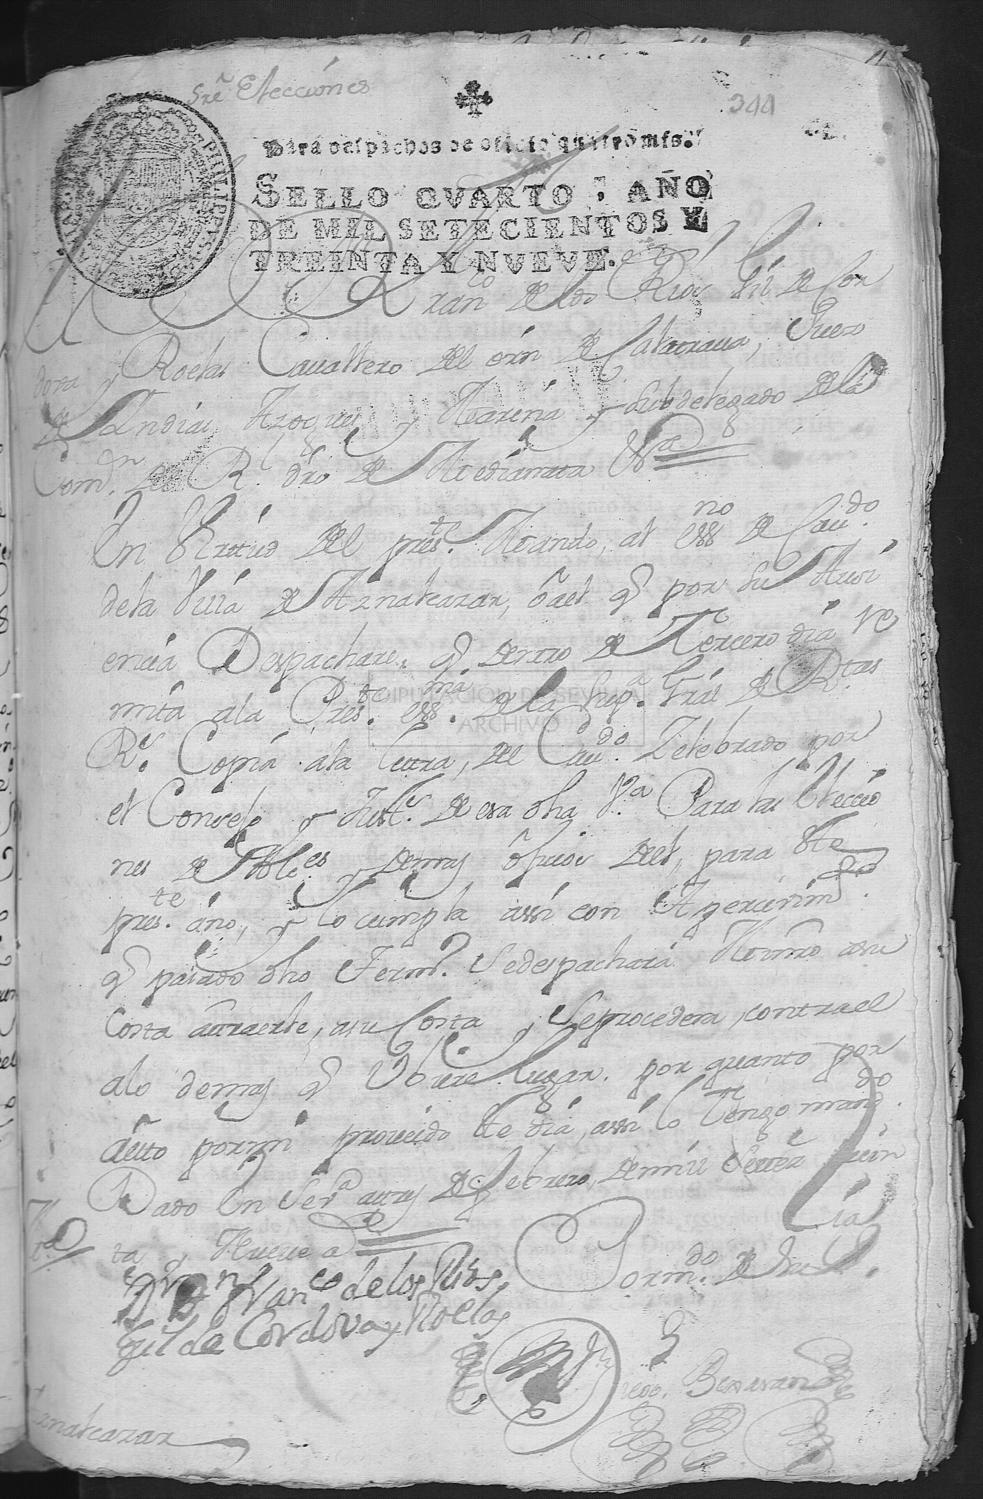 sre Elecciones
344
Para despachos de oficio quatro mrs.
SELLO QVARTO, AÑO
DE MIL SETECIENTOS Y
TREINTA Y NVEVE.
Franco de los Rios Gil de Cor
dova y Roelas Cavallero del orn de Calatrava, Juez
de Indias Azogues y Marina y subdelegado de la
Comon del R. dro de Mediannata &a
En Virtud del preste Mando, al essno de Cavdo
de la Villa de Aznalcazar, o a el q por su Ausi
encia Despachare, q dentro de Tercero dia re
mita a la Preste essma de la Supa Gral de Rtas
Rs. Copia a la letra, del Cavdo Zelebrado por
el Consejo y Justa de esa dha Va Para las Eleccio
nes de Alces y demas ofizios del, para este
preste año, y lo cumpla assi con Apercivimto
q pasado dho Termo se despachara Mintro a su
Costa a traerle, a su Costa y se procedera contra el
a lo demas q Ubiere lugar. por quanto por
Auto por mi proveido este dia, assi lo tengo mando
Dado en Seva a tres de Febrero, de mil Settez trein
ta y Nueve as
Dn Franco de los Rios
Gil de Cordova y Roelas
Por mdo de su Sa
DIPUTACIÓN DE SEVILLA
ARCHIVO
Aznalcazar